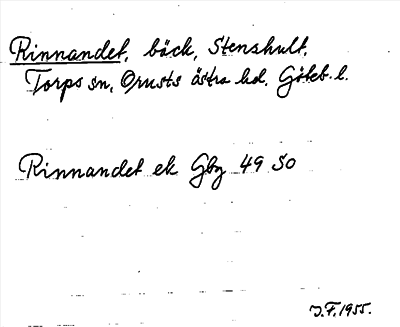 Rinnandet, bäck, Stenshult,
Torps sn, Orusts östra hd. Göteb. l.
Rinnandet ek Gbg 49 SO
J.F. 1955.